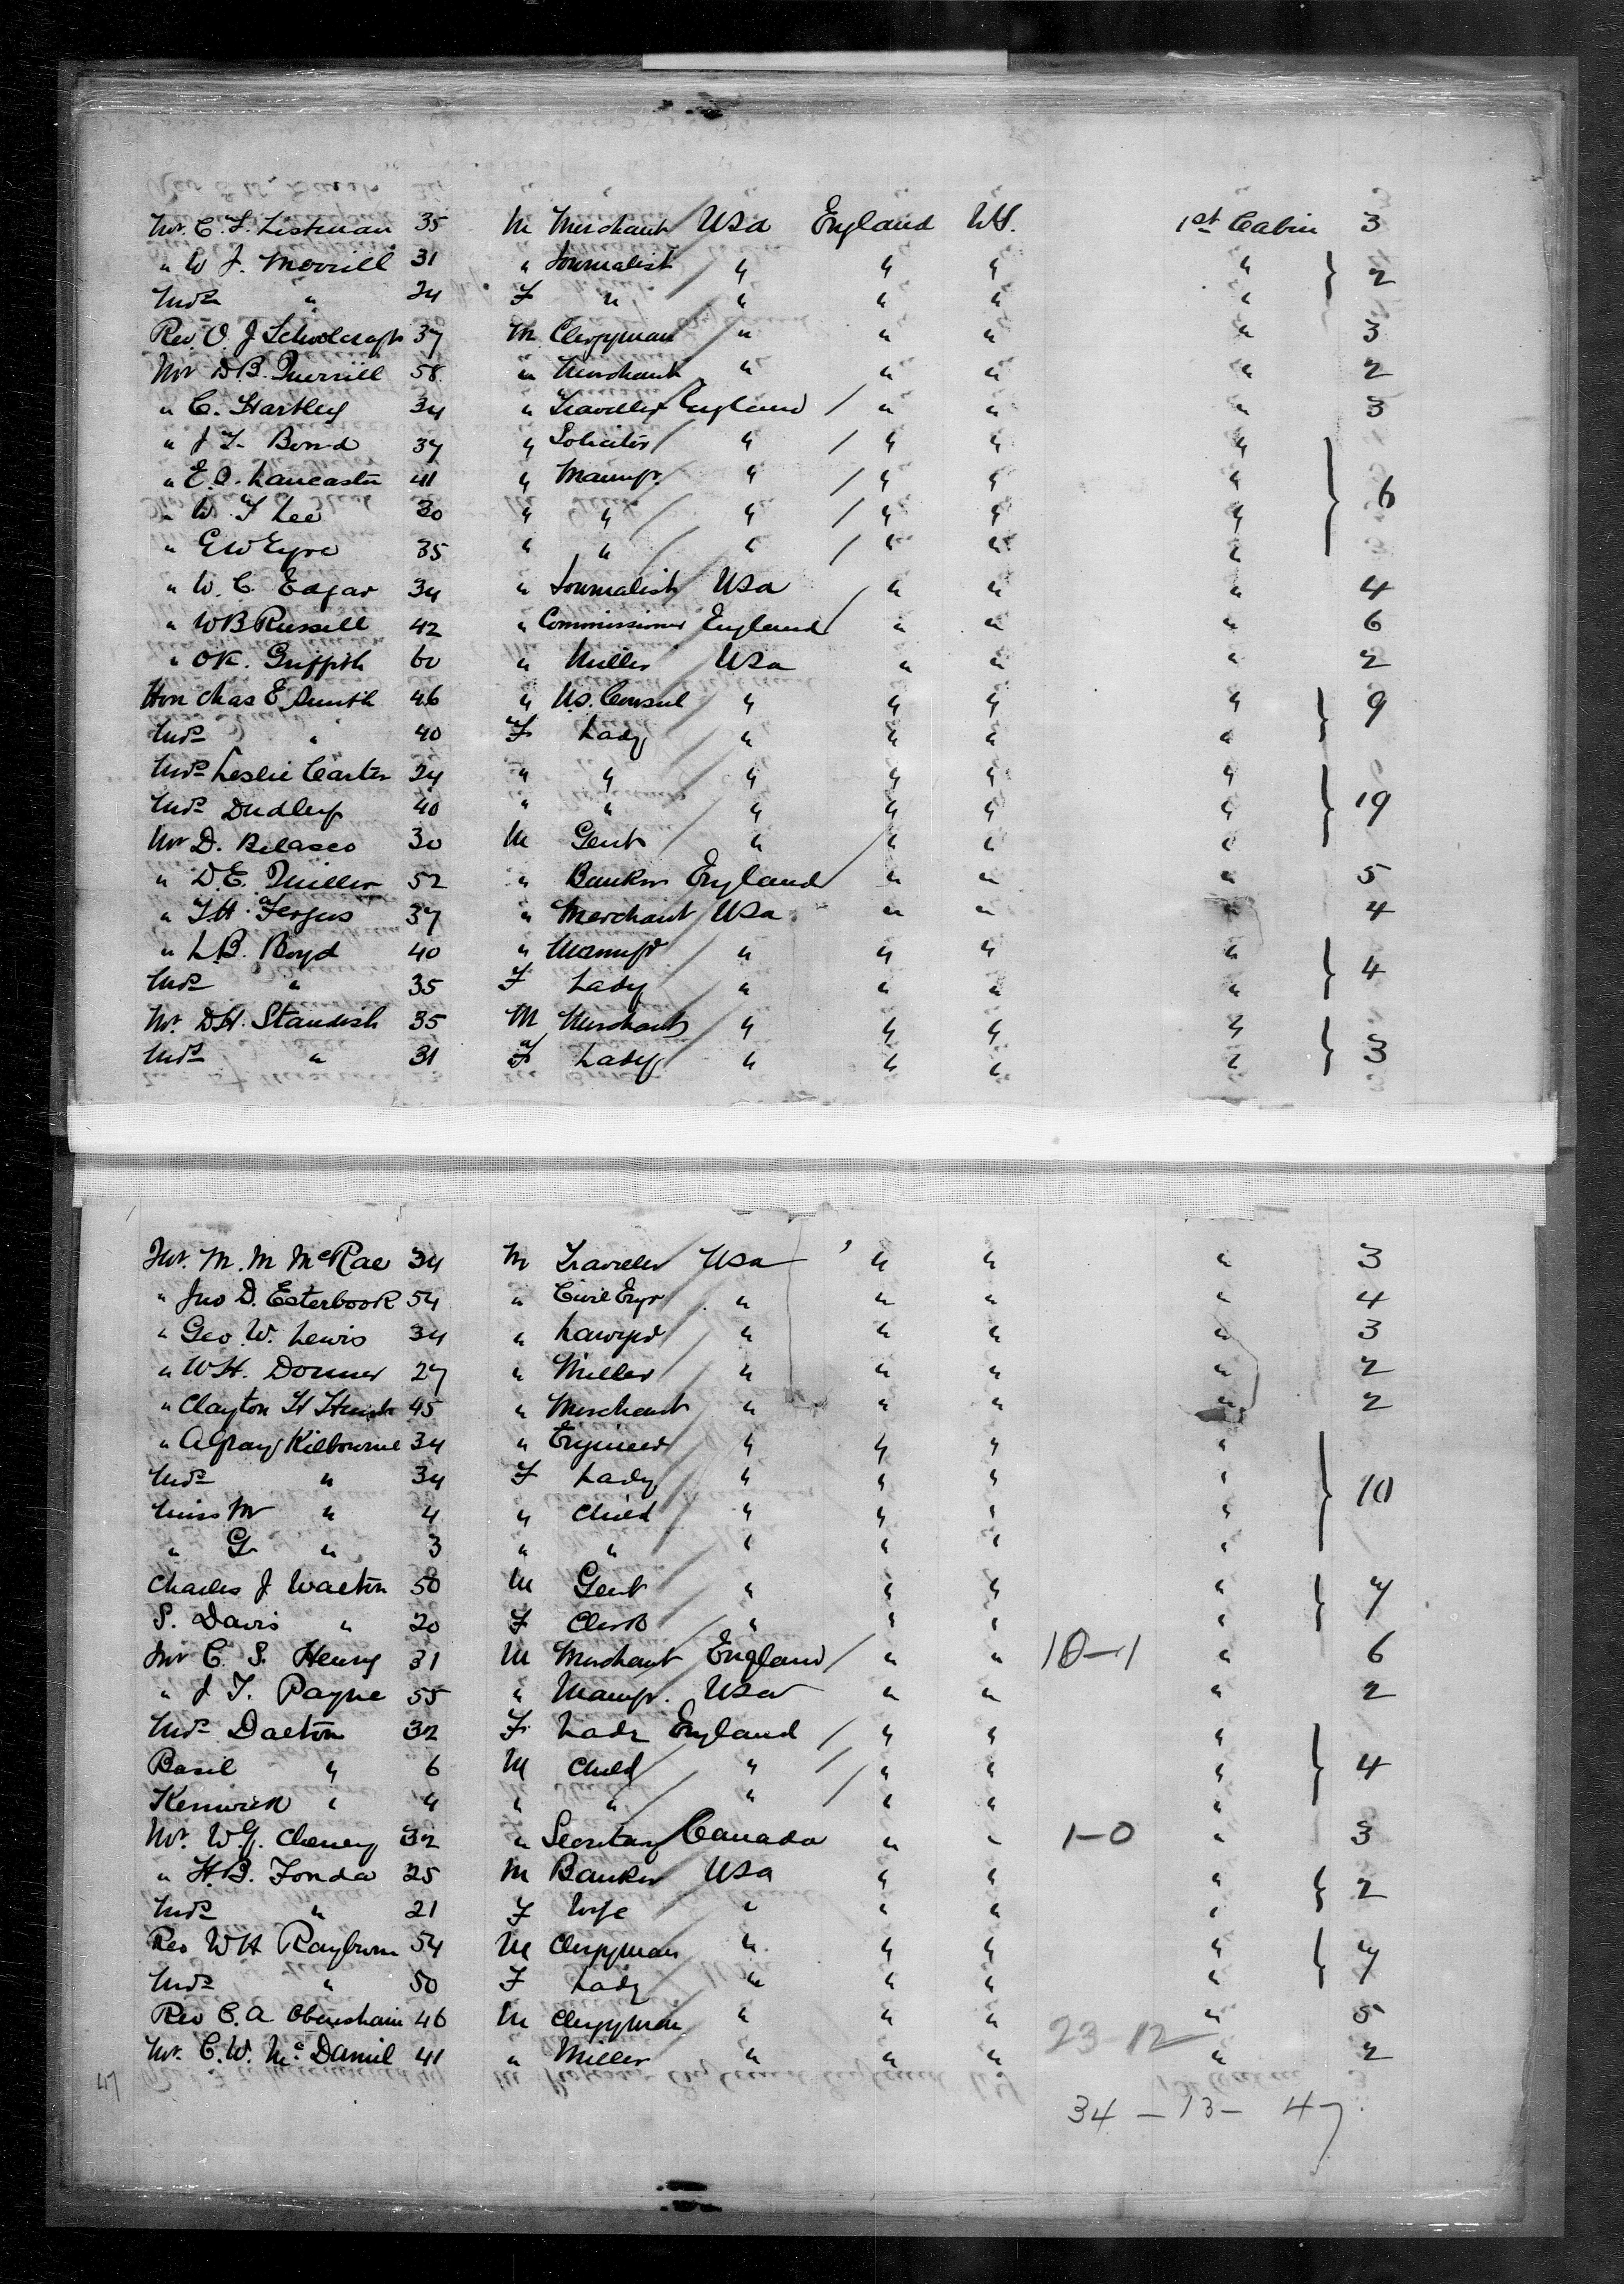 Mr. C. F. Listman 35 M Merchant USA England NY. 1st Cabin 3
" W J. Morrill 31 " Journalist " " " " } 2
Mrs " 24 F " " " " "
Rev. O. J Schoolcraft 37 M Clergyman " " " " 3
Mr D.B. Merrill 58 " Merchant " " " " 2
" C. Hartley 34 " Traveller England / " " " 3
" J T. Bond 37 " Solicitor " / " " " } 6
" E. O. Lancaster 41 " Manufr. " / " " "
" W. T Lee 30 " " " / " " "
" G W Eyre 35 " " " / " " "
" W. C. Edgar 34 " Journalist USA " " " 4
" W B Russell 42 " Commissioner England / " " " 6
" OK. Griffith 60 " Miller USA " " " 2
Hon Chas E. Smith 46 " U.S. Consul " " " " } 9
Mrs " 40 F Lady " " " "
Mrs Leslie Carter 24 " " " " " " } 19
Mrs Dudley 40 " " " " " "
Mr D. Belasco 30 M Gent " " " "
" D.E. Miller 52 " Banker England / " " " 5
" T.H. Fergus 37 " Merchant USA " " " 4
" L.B. Boyd 40 " Manufr " " " " } 4
Mrs " 35 F Lady " " " "
Mr. D.H. Standish 35 M Merchant " " " " } 3
Mrs " 31 F Lady " " " "
Mr. M. M McRae 34 M Traveler USA " " " 3
" Jno D. Esterbook 54 " Civil Engr " " " " 4
" Geo W. Lewis 34 " Lawyer " " " " 3
" W.H. Donner 27 " Miller " " " " 2
" Clayton H 45 " Merchant " " " " 2
" A Gray Kilbourne 34 " Engineer " " " " } 10
Mrs " 34 F Lady " " " "
Miss M " 4 " Child " " " "
" G " 3 " " " " " "
Charles J Walton 50 M Gent " " " " } 7
S. Davis " 20 F Clerk " " " "
Mr C. S. Henry 31 M Merchant England / " " 10-1 " 6
" J T. Payne 55 " Manufr. USA " " " 2
Mrs Dalton 32 F Lady England / " " " } 4
Basil " 6 M Child " / " " "
Kenwick " 4 " " " / " " "
Mr. W.G. Cheney 32 " Secretary Canada " " 1-0 " 3
" H.B. Fonda 25 M Banker USA " " " } 2
Mrs " 21 F Wife " " " "
Rev W H Rayburn 54 M Clergyman " " " " } 7
Mrs " 50 F Lady " " " "
Rev C. A Obenshain 46 M Clergyman " " " " 5
Mr. C. W. McDaniel 41 " Miller " " " " 2
23-12
47
34 - 13 - 47